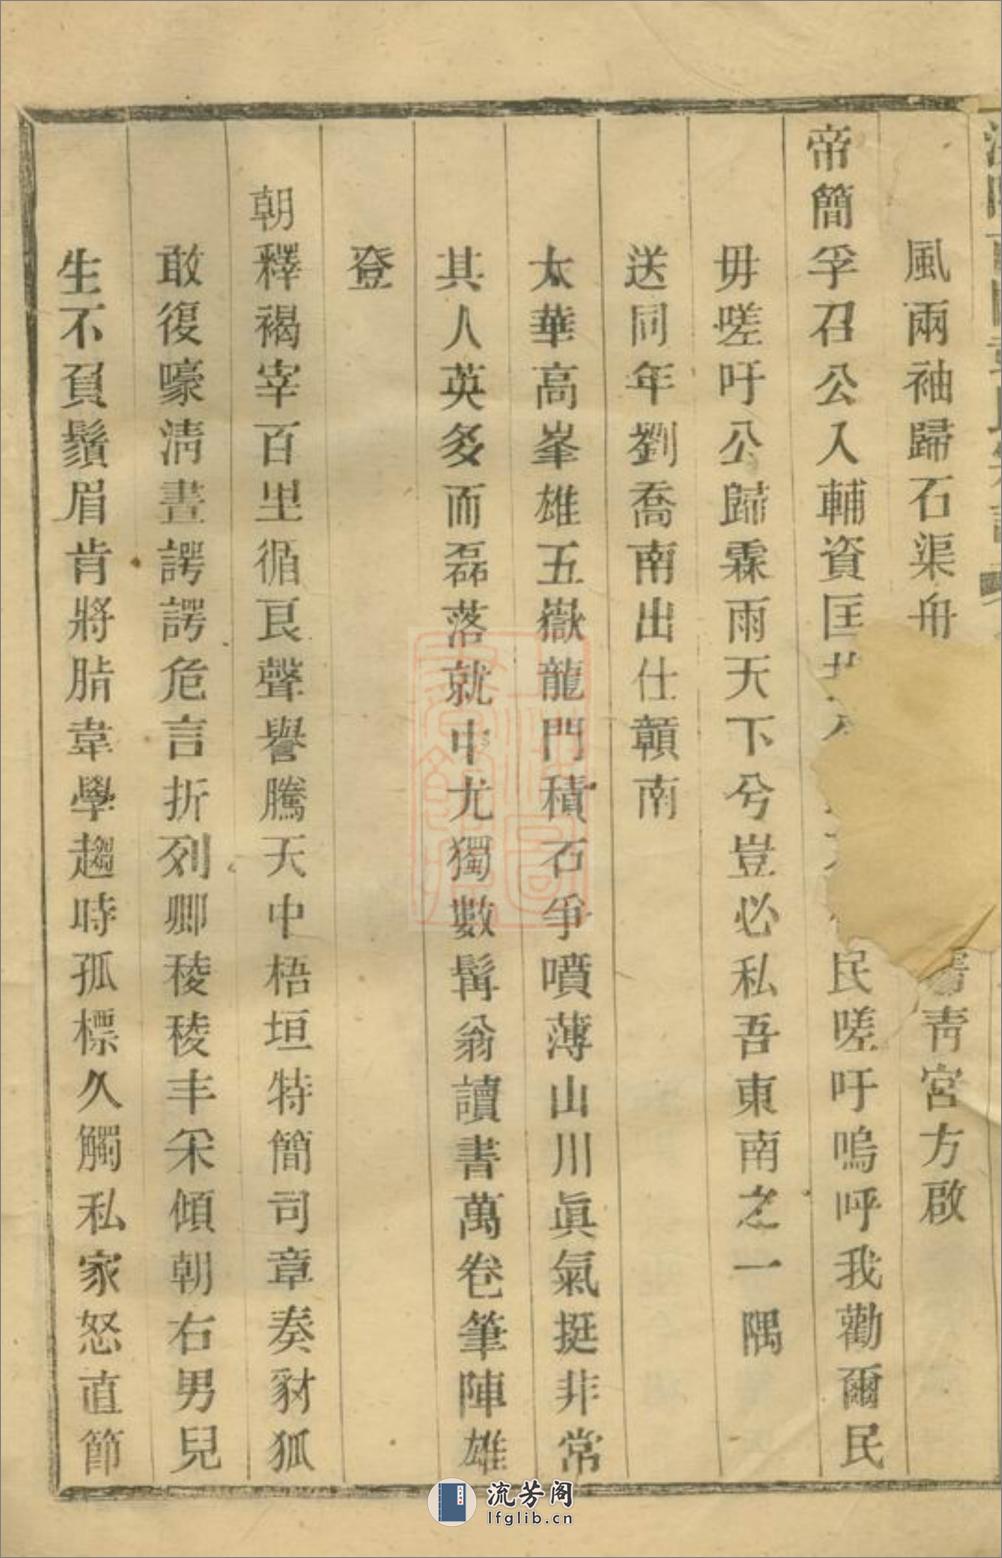 風兩袖歸石渠舟青宮方啟
帝簡孚召公入輔資匡民嗟吁嗚呼我勸爾民
毋嗟吁公歸霖雨天下兮豈必私吾東南之一隅
送同年劉喬南出仕贛南
太華高峯雄五嶽龍門積石爭噴薄山川眞氣挺非常
其人英多而磊落就中尤獨數髯翁讀書萬卷筆陣雄
登
朝釋褐宰百里循良聲譽騰天中梧垣特簡司章奏豺狐
敢復嚎淸晝諤諤危言折列卿稜稜丰采傾朝右男兒
生不負鬚眉肯將脂韋學趨時孤標久觸私家怒直節
流芳阁
lfglib.cn